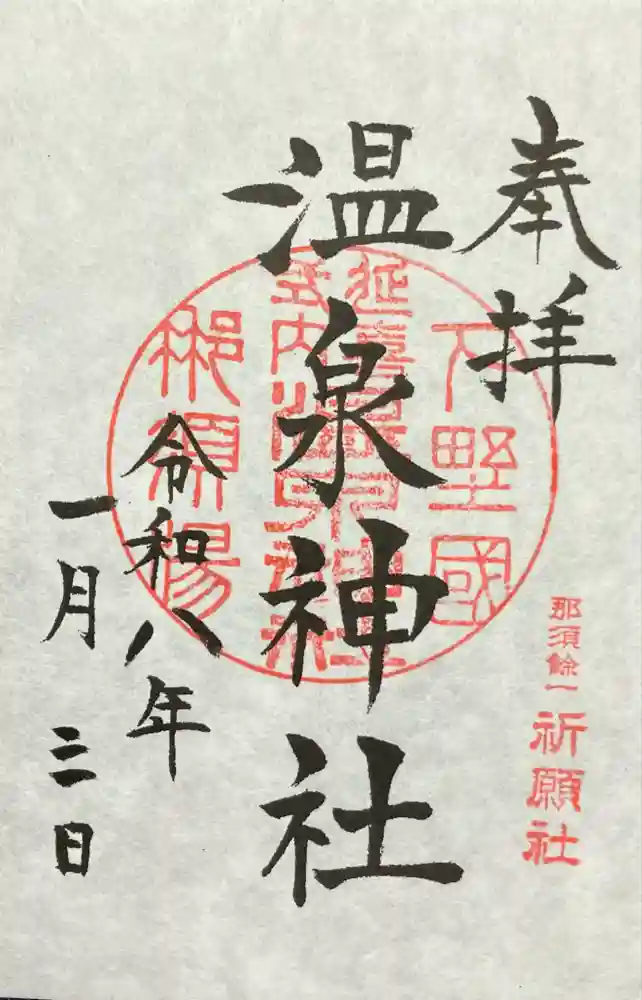 奉拝
温泉神社
令和八年
一月三日
下野國
延喜
式内温泉神社
那須湯
那須餘一
祈願社